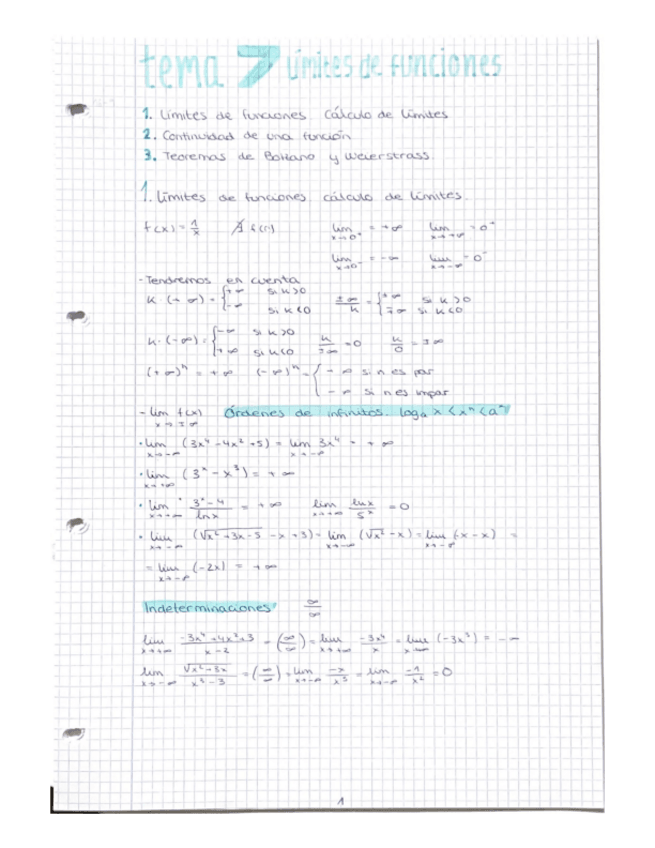 tema 7 Límites de funciones
1. Límites de funciones. Cálculo de límites
2. Continuidad de una función
3. Teoremas de Bolzano y Weierstrass.
1. Límites de funciones. cálculo de límites.
f(x) = 1/x ∄ f(0) lim x→0⁺ = +∞ lim x→+∞ = 0⁺
lim x→0⁻ = -∞ lim x→-∞ = 0⁻
- Tendremos en cuenta
k (+∞) = { +∞ si k>0 / -∞ si k<0 ±∞/k = { ±∞ si k>0 / ∓∞ si k<0
k·(-∞) = { -∞ si k>0 / +∞ si k<0 k/±∞ = 0 k/0 = ±∞
(+∞)ⁿ = +∞ (-∞)ⁿ = { -∞ si n es par / -∞ si n es impar
- lim x→±∞ f(x) Órdenes de infinitos. logₐ x < xⁿ < aˣ
· lim x→-∞ (3x⁴ - 4x² + 5) = lim x→-∞ 3x⁴ = +∞
· lim x→+∞ (3ˣ - x³) = +∞
· lim x→+∞ 3ˣ-4 / lnx = +∞ lim x→+∞ lnx / 5ˣ = 0
· lim x→-∞ (√x²+3x-5 - x + 3) = lim x→-∞ (√x² - x) = lim x→-∞ (-x - x) =
= lim x→-∞ (-2x) = +∞
Indeterminaciones ∞/∞
lim x→+∞ -3x⁴+4x²+3 / x-2 = (∞/∞) = lim x→+∞ -3x⁴/x = lim x→∞ (-3x³) = -∞
lim x→-∞ √x²-3x / x³-3 = (∞/∞) = lim x→-∞ -x/x³ = lim x→-∞ -1/x² = 0
1